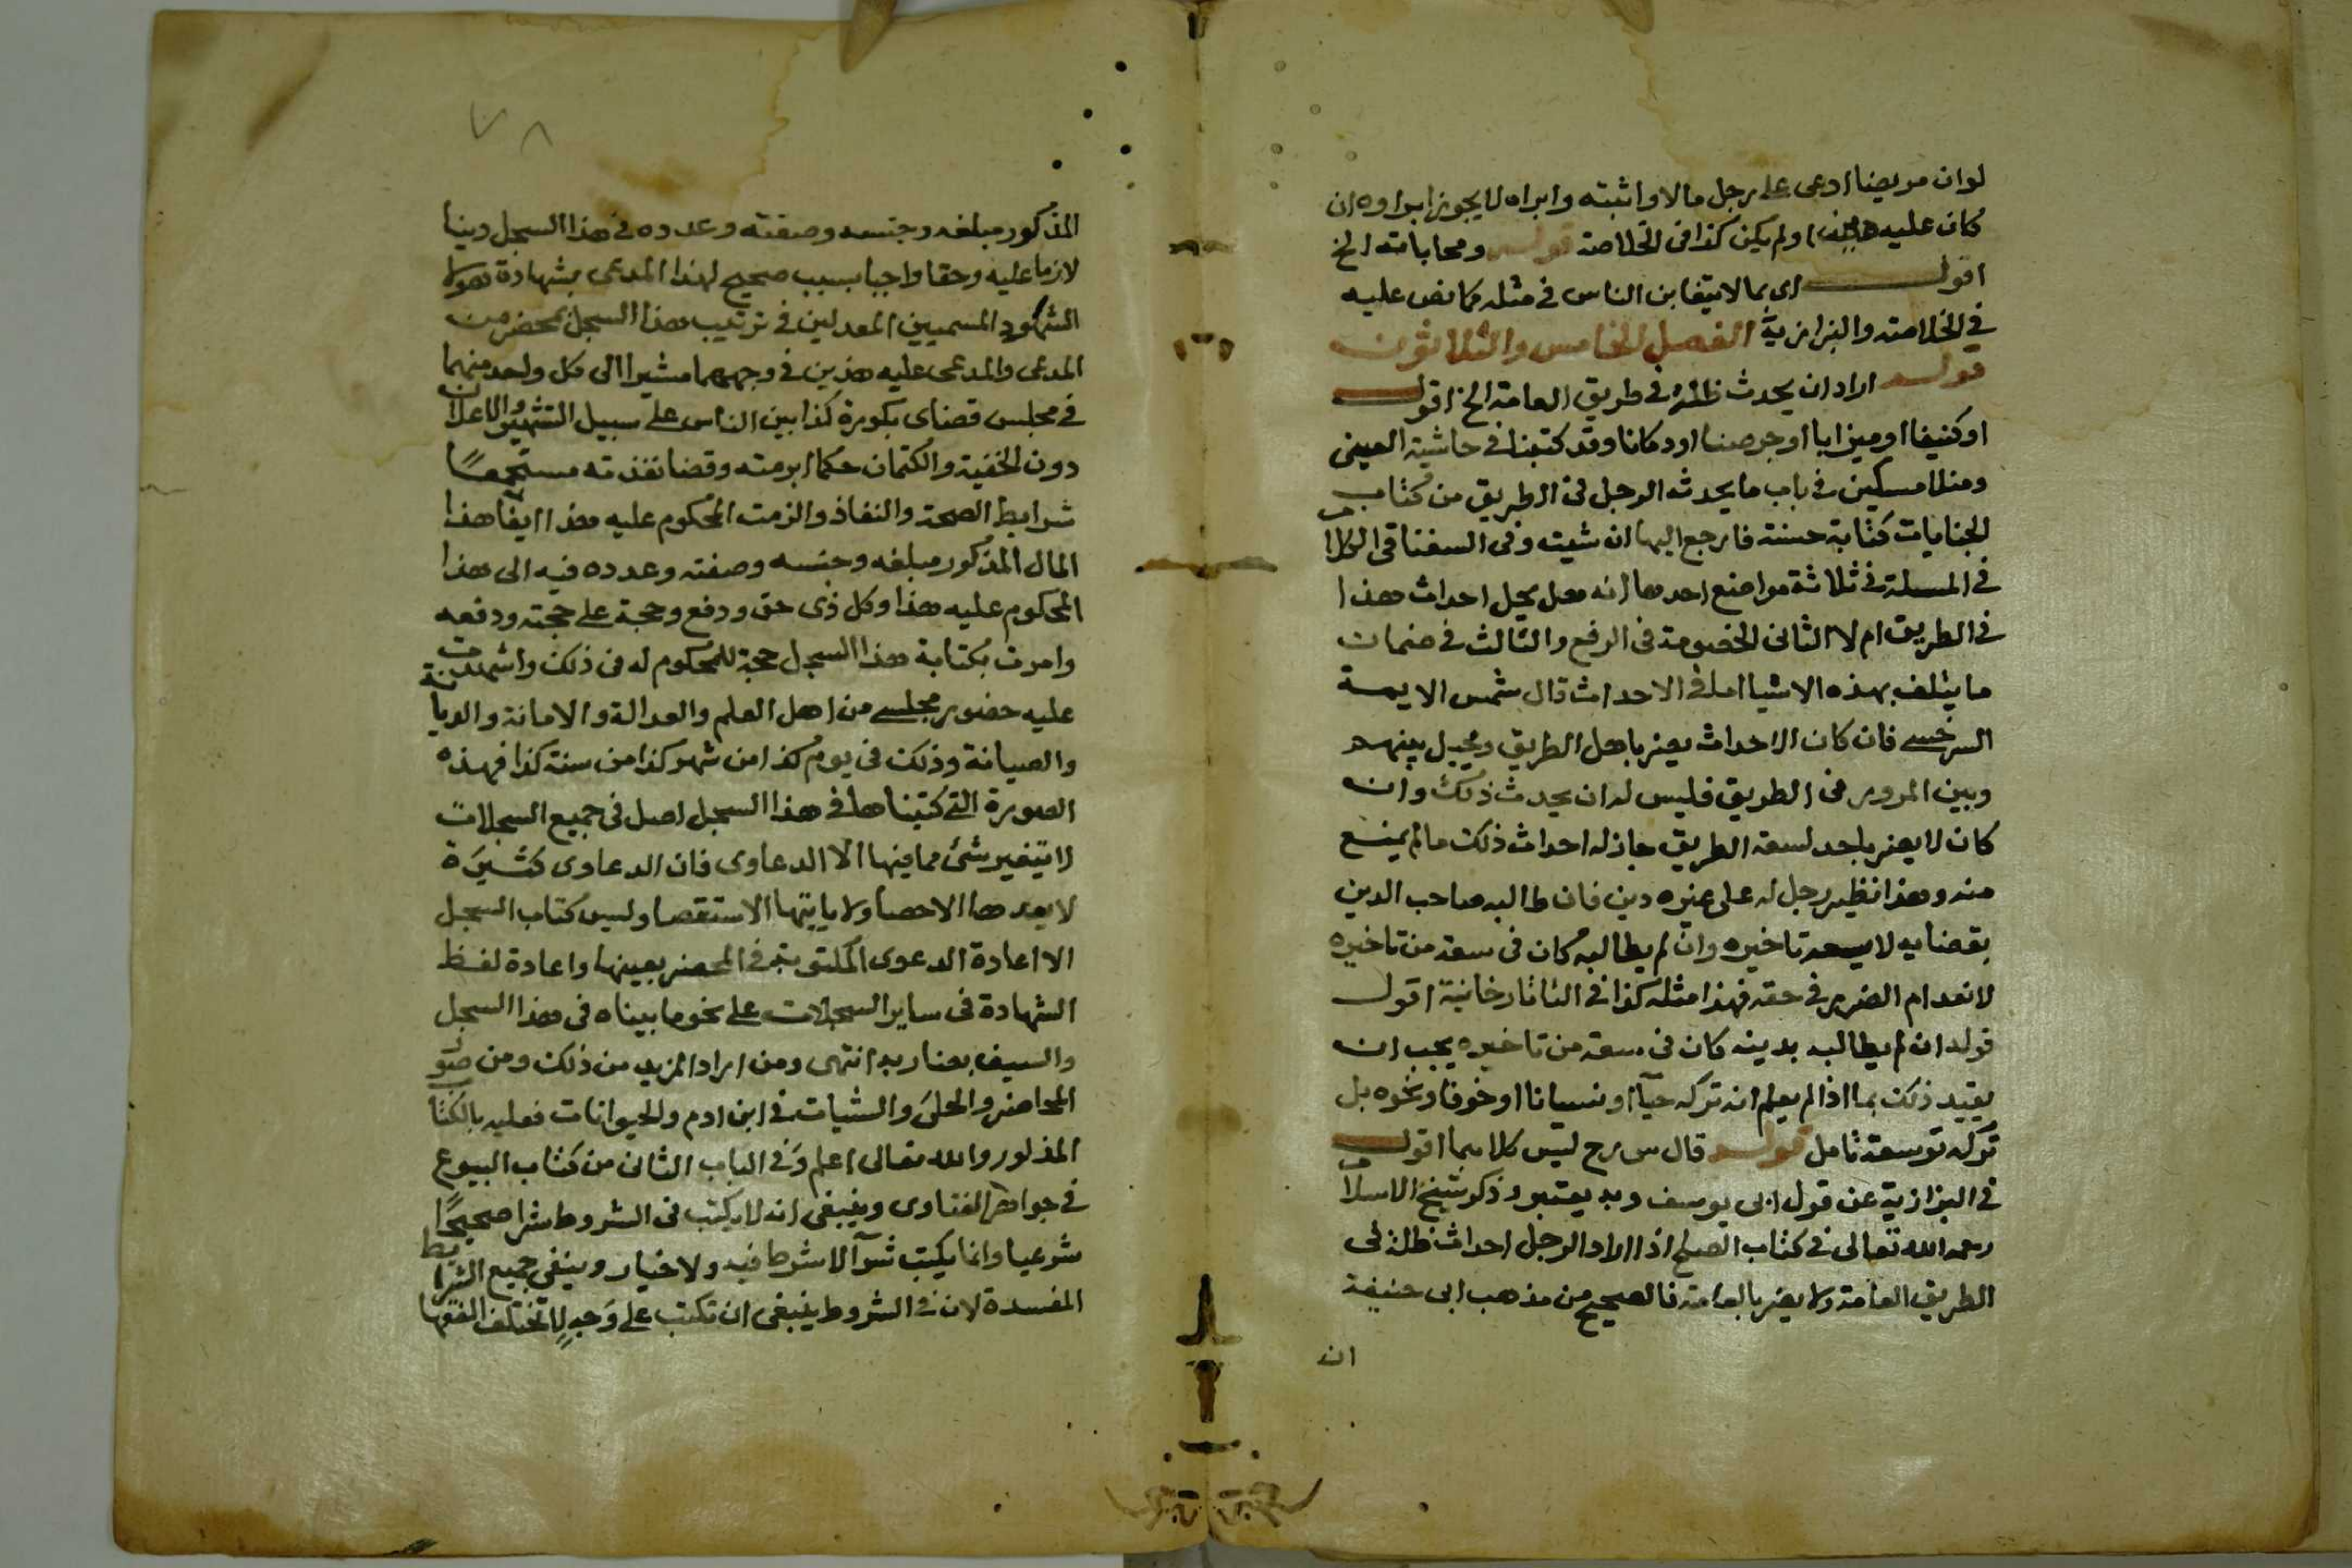 لوان مريضا ادعى على رجل مالا واثبته وابراه لا يجوز ابراوه ان
كان عليه او لم يكن كذا فى الخلاصة قوله ومحاباته الخ
اقول اى بما لا يتغابن الناس فى مثله كما نص عليه
فى الخلاصة والبزازية الفصل الخامس والثلاثون
قوله اراد ان يحدث ظلة فى طريق العامة الخ اقول
او كنيفا او ميزابا او جرصنا او دكانا وقد كتبنا فى حاشية العينى
ومنلا مسكين فى باب ما يحدثه الرجل فى الطريق من كتاب
الجنايات كتابة حسنة فارجع اليها ان شيت وفى السغناقى الكلام
فى المسلة فى ثلاثة مواضع احدها انه هل يحل احداث هذا
فى الطريق ام لا الثانى الخصومة فى الرفع والثالث فى ضمان
ما يتلف بهذه الاشيا اما فى الاحداث قال شمس الايمة
السرخسى فان كان الاحداث يضر باهل الطريق ويحيل بينهم
وبين المرور فى الطريق فليس له ان يحدث ذلك وان
كان لا يضر باحد لسعة الطريق جاز له احداث ذلك ما لم يمنع
منه وهذا نظير رجل له على غيره دين فان طالبه صاحب الدين
بقضايه لا يسعه تاخيره وان لم يطالبه كان فى سعة من تاخيره
لانعدام الضرر فى حقه فهذا مثله كذا فى التاتارخانية اقول
قوله ان لم يطالبه بدينه كان فى سعة من تاخيره يجب ان
يقيد ذلك بما اذا لم يعلم انه تركه حيآ او نسيانا او خوفا ونحوه بل
تركه توسعة تامل قوله قال س رح ليس كلاهما اقول
فى البزازية عن قول ابى يوسف وبه يعتبر وذكر شيخ الاسلام
رحمه الله تعالى فى كتاب الصلح اذا اراد الرجل احداث ظلة فى
الطريق العامة ولا يضر بالعامة فالصحيح من مذهب ابى حنيفة
ان
٧٨
المذكور مبلغه وجنسه وصفته وعدده فى هذا السجل دينا
لازما عليه وحقا واجبا بسبب صحيح لهذا المدعى بشهادة هولا
الشهود المسميين المعدلين فى ترتيب هذا السجل بمحضر من
المدعى والمدعى عليه هذين فى وجههما مشيرا الى كل واحد منهما
فى مجلس قضاى بكورة كذا بين الناس على سبيل التشهير والاعلان
دون الخفية والكتمان حكما ابرمته وقضا نفذته مستجمعا
شرايط الصحة والنفاذ والزمت المحكوم عليه هذا ايفا هذا
المال المذكور مبلغه وجنسه وصفته وعدده فيه الى هذا
المحكوم عليه هذا وكل ذى حق ودفع وحجة على حجته ودفعه
وامرت بكتابة هذا السجل حجة للمحكوم له فى ذلك واشهدت
عليه حضور مجلسى من اهل العلم والعدالة والامانة والديانة
والصيانة وذلك فى يوم كذا من شهر كذا من سنة كذا فهذه
الصورة التى كتبناها فى هذا السجل اصل فى جميع السجلات
لا يتغير شئ مما فيها الا الدعاوى فان الدعاوى كثيرة
لا يعدها الاحصا ولا ياتيها الاستقصا وليس كتاب السجل
الا اعادة الدعوى المكتوبة فى المحضر بعينها واعادة لفظ
الشهادة فى ساير السجلات على نحو ما بيناه فى هذا السجل
والسيف بضاربه انتهى ومن اراد المزيد من ذلك ومن صور
المحاضر والحلى والشيات فى ابن ادم والحيوانات فعليه بالكتاب
المذكور والله تعالى اعلم وفى الباب الثانى من كتاب البيوع
فى جواهر الفتاوى وينبغى انه لا يكتب فى الشروط شرا صحيحا
شرعيا وانما يكتب شرآ لا شرط فيه ولا خيار وينفى جميع الشرايط
المفسدة لان فى الشروط ينبغى ان تكتب على وجه لا تختلف الفقها